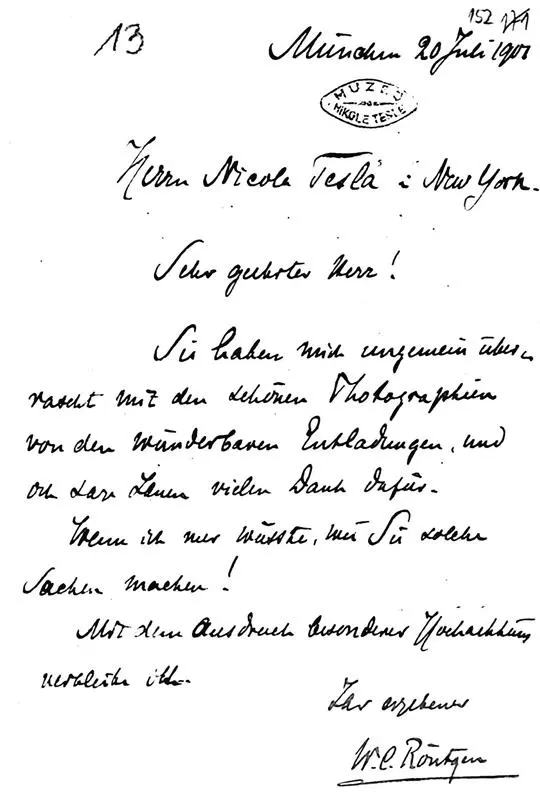 152 171
13
München 20 Juli 1901
MUZEJ
NIKOLE TESLE
Herrn Nicola Tesla i New York.
Sehr geehrter Herr!
Sie haben mich ungemein über-
rascht mit den schönen Photographien
von den wunderbaren Entladungen, und
ich sage Ihnen vielen Dank dafür.
Wenn ich nur wüsste, wie Sie solche
Sachen machen!
Mit dem Ausdruck besonderer Hochachtung
verbleibe ich
Ihr ergebener
W. C. Röntgen